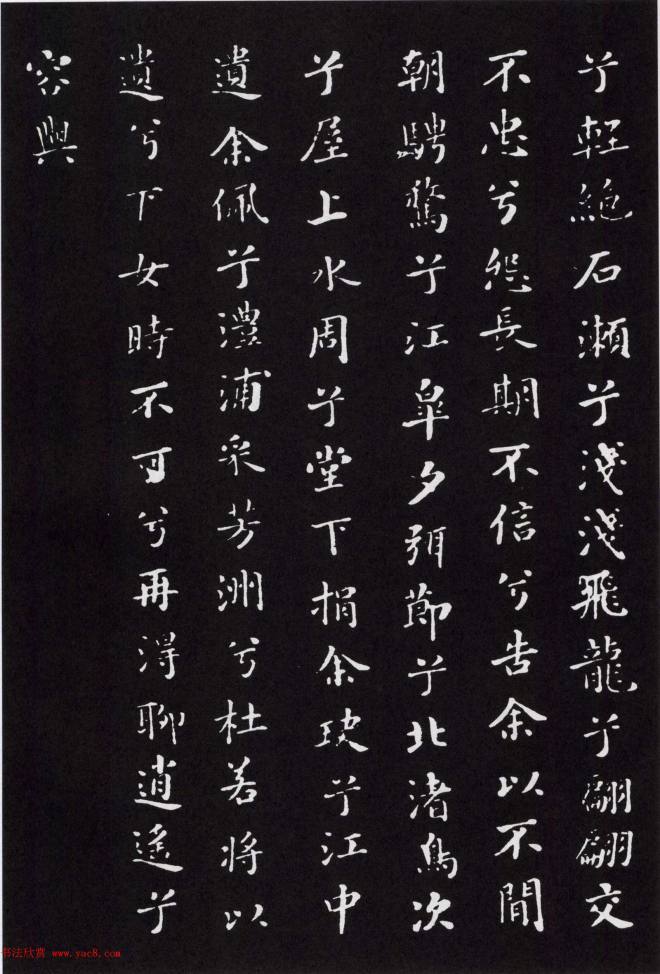 兮輕絕石瀨兮淺淺飛龍兮翩翩交
不忠兮怨長期不信兮告余以不閒
朝騁騖兮江皋夕弭節兮北渚鳥次
兮屋上水周兮堂下捐余玦兮江中
遺余佩兮澧浦采芳洲兮杜若將以
遺兮下女時不可兮再得聊逍遙兮
容與
书法欣赏 www.yac8.com